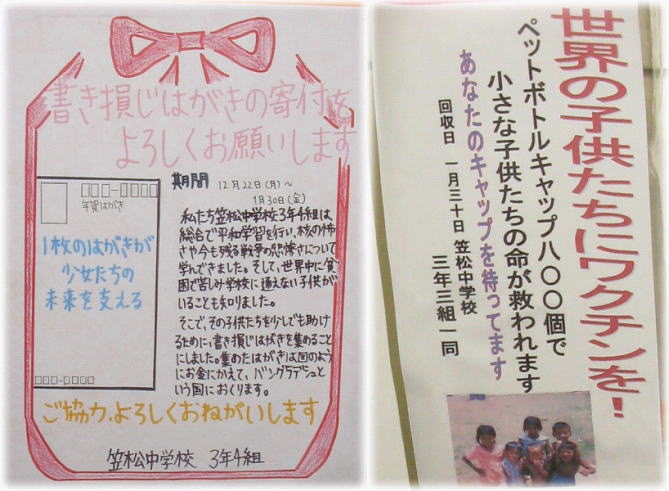 書き損じはがきの寄付を
よろしくお願いします
期間 12月22日(月)~
1月30日(金)
年賀はがき
1枚のはがきが
少女たちの
未来を支える
私たち笠松中学校3年4組は
総合で平和学習を行い、核の怖
さや今も残る戦争の悲惨さについて
学んできました。そして、世界中に貧
困で苦しみ学校に通えない子供が
いることも知りました。
そこで、その子供たちを少しでも助け
るために、書き損じはがきを集めること
にしました。集めたはがきは図のよう
にお金にかえて、バングラデシュと
いう国におくります。
ご協力、よろしくおねがいします
笠松中学校 3年4組
世界の子供たちにワクチンを!
ペットボトルキャップ八〇〇個で
小さな子供たちの命が救われます
あなたのキャップを待ってます
回収日 一月三十日 笠松中学校
三年三組一同